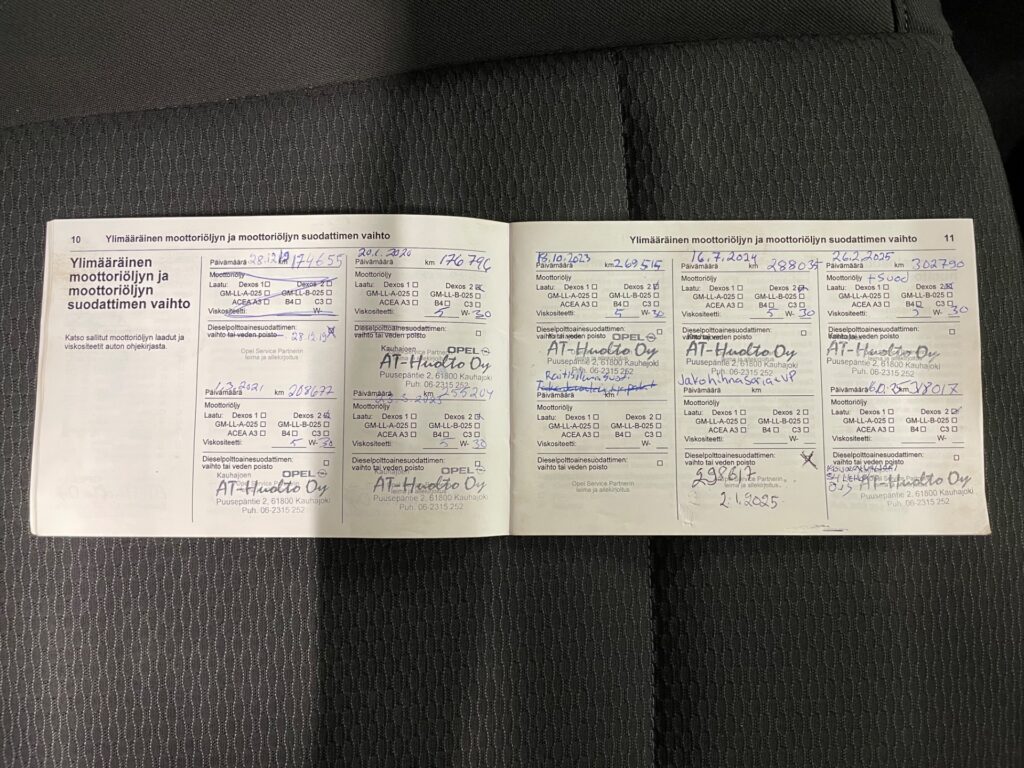 10 Ylimääräinen moottoriöljyn ja moottoriöljyn suodattimen vaihto
Ylimääräinen
moottoriöljyn ja
moottoriöljyn
suodattimen vaihto
Katso sallitut moottoriöljyn laadut ja
viskositeetit auton ohjekirjasta.
Päivämäärä 28.12.19 km 174655
Moottoriöljy
Laatu: Dexos 1 Dexos 2
GM-LL-A-025 GM-LL-B-025
ACEA A3 B4 C3
Viskositeetti: W-
Dieselpolttoainesuodattimen:
vaihto tai veden poisto 28.12.19
Opel Service Partnerin
leima ja allekirjoitus
1.3.2021 208677
Moottoriöljy
Laatu: Dexos 1 Dexos 2
GM-LL-A-025 GM-LL-B-025
ACEA A3 B4 C3
Viskositeetti: 5 W- 30
Dieselpolttoainesuodattimen:
vaihto tai veden poisto
Kauhajoen OPEL
AT-Huolto Oy
Puusepäntie 2, 61800 Kauhajoki
Puh. 06-2315 252
20.1.2020
Päivämäärä km 176796
Moottoriöljy
Laatu: Dexos 1 Dexos 2
GM-LL-A-025 GM-LL-B-025
ACEA A3 B4 C3
Viskositeetti: 5 W- 30
Dieselpolttoainesuodattimen:
vaihto tai veden poisto
Kauhajoen OPEL
AT-Huolto Oy
Puusepäntie 2, 61800 Kauhajoki
Puh. 06-2315 252
Päivämäärä km 255204
Moottoriöljy
Laatu: Dexos 1 Dexos 2
GM-LL-A-025 GM-LL-B-025
ACEA A3 B4 C3
Viskositeetti: 5 W- 30
Dieselpolttoainesuodattimen:
vaihto tai veden poisto
Kauhajoen OPEL
AT-Huolto Oy
Puusepäntie 2, 61800 Kauhajoki
Puh. 06-2315 252
Ylimääräinen moottoriöljyn ja moottoriöljyn suodattimen vaihto 11
13.10.2023
Päivämäärä km 269515
Moottoriöljy
Laatu: Dexos 1 Dexos 2
GM-LL-A-025 GM-LL-B-025
ACEA A3 B4 C3
Viskositeetti: 5 W- 30
Dieselpolttoainesuodattimen:
vaihto tai veden poisto
OPEL
AT-Huolto Oy
Puusepäntie 2, 61800 Kauhajoki
Puh. 06-2315 252
km
Moottoriöljy
Laatu: Dexos 1 Dexos 2
GM-LL-A-025 GM-LL-B-025
ACEA A3 B4 C3
Viskositeetti: W-
Dieselpolttoainesuodattimen:
vaihto tai veden poisto
Opel Service Partnerin
leima ja allekirjoitus
16.7.2024
Päivämäärä km 288035
Moottoriöljy
Laatu: Dexos 1 Dexos 2
GM-LL-A-025 GM-LL-B-025
ACEA A3 B4 C3
Viskositeetti: 5 W- 30
Dieselpolttoainesuodattimen:
vaihto tai veden poisto
AT-Huolto Oy
Puusepäntie 2, 61800 Kauhajoki
Puh. 06-2315 252
Jakohihnasarja + VP
Päivämäärä km
Moottoriöljy
Laatu: Dexos 1 Dexos 2
GM-LL-A-025 GM-LL-B-025
ACEA A3 B4 C3
Viskositeetti: W-
Dieselpolttoainesuodattimen:
vaihto tai veden poisto
298617
2.1.2025
26.2.2025
Päivämäärä km 302790
Moottoriöljy + Suod
Laatu: Dexos 1 Dexos 2
GM-LL-A-025 GM-LL-B-025
ACEA A3 B4 C3
Viskositeetti: 5 W- 30
Dieselpolttoainesuodattimen:
vaihto tai veden poisto
AT-Huolto Oy
Puusepäntie 2, 61800 Kauhajoki
Puh. 06-2315 252
Päivämäärä km
Moottoriöljy
Laatu: Dexos 1 Dexos 2
GM-LL-A-025 GM-LL-B-025
ACEA A3 B4 C3
Viskositeetti: W-
Dieselpolttoainesuodattimen:
vaihto tai veden poisto
AT-Huolto Oy
Puusepäntie 2, 61800 Kauhajoki
Puh. 06-2315 252